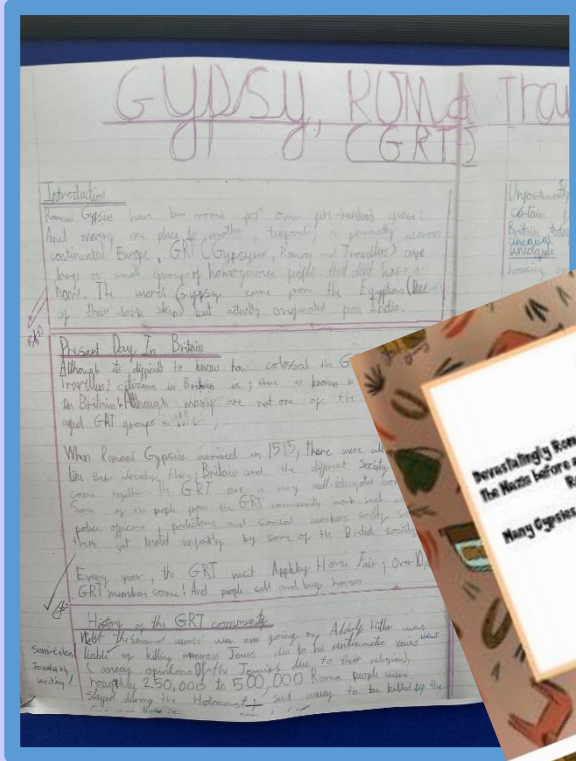 GYPSY, ROMA Trav
(GRT)
Introduction
Romani Gypsies have been around for over five-hundred years!
And moving one place to another temporarily or permantly across
continental Europe, GRT (Gypsyies, Romas and Travellers) are
large or small groups of homogeneous people that dont have a
home. The word Gypsy come from the Egyptians (Due
of their dark skin) but actually originated from India.
Unfortunately
certain
Britain today
unequal
housing
Present Day In Britain
Although its difficult to know how colossal the G
Travellers) citizens in Britain is, there is known
in Britain! Although many are not one of the
aged GRT groups
When Romani Gypsies arrived in 1515, there were
Britain and the different Society
come together. The GRT are a very well-integrated
Some of the people from the GRT community work such
police officers, and social workers sadly
them get treated unfairly by some of the British society
Every year, the GRT visit Appleby Horse Fair, Over 10,
GRT members come! And people sell and buy horses.
History of the GRT community
the second world war was going on, Adolf Hitler was
liable of killing numerous Jews due to his antisemitic views
opinions of the Jewish due to their religion),
roughly 250,000 to 500,000 Roma people were
slayed during the Holocaust, sent away to be killed by the
Semi-colon
writing!
Devastatingly Rom
The Nazis before a
Ro
Many Gypsies